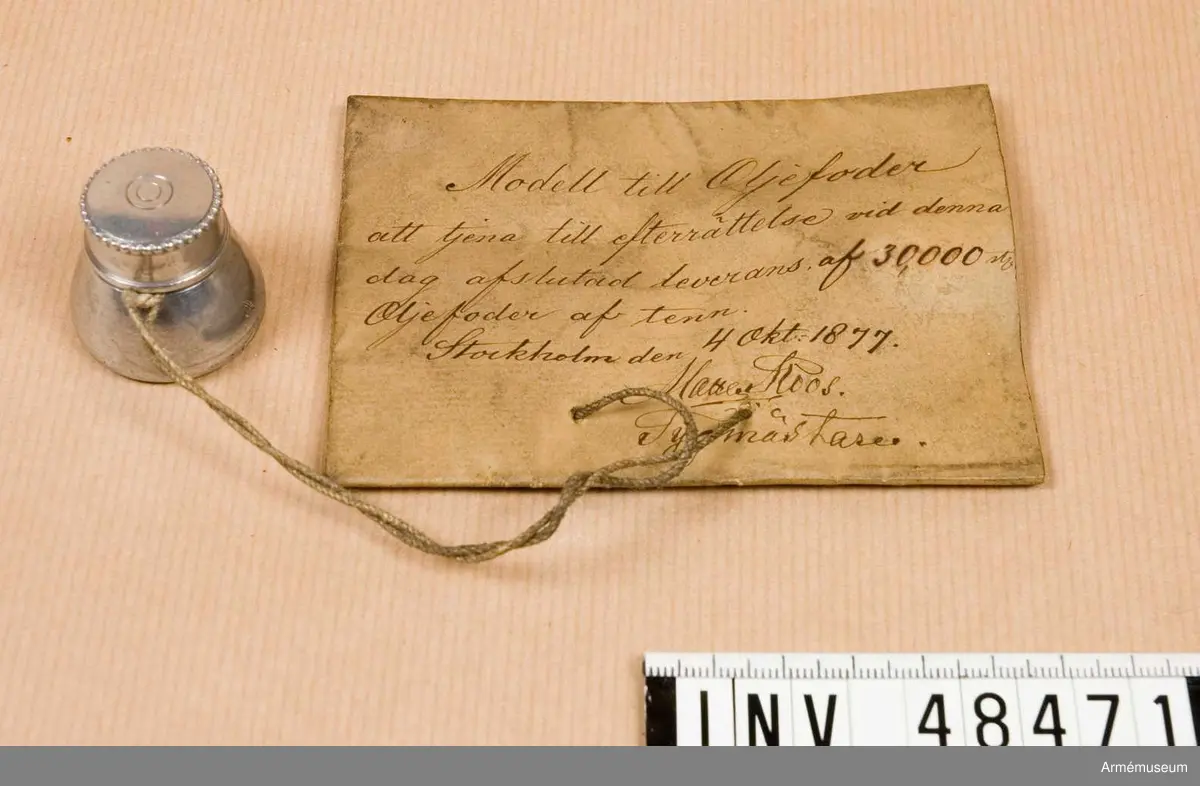 Modell till Oljefoder
att tjena till efterrättelse vid denna
dag afslutad leverans, af 30,000 st
Oljefoder af tenn.
Stockholm den 4 Okt: 1877.
Roos.
Tygmästare.
INV 48471
Armémuseum